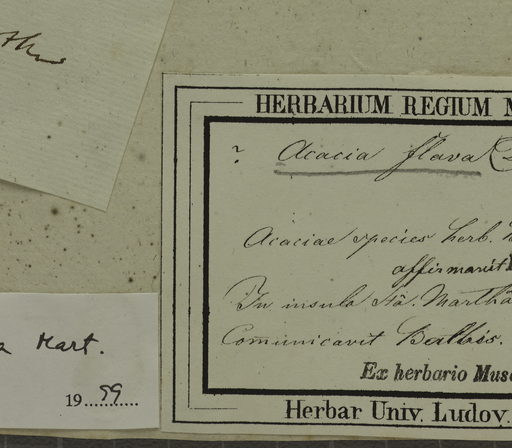 HERBARIUM REGIUM M
? Acacia flava (
Acaciae species herb.
affirmavit
In insula Sta. Martha
Communicavit Balbis.
Ex herbario Muse
Herbar Univ. Ludov.
a Mart.
19....59....